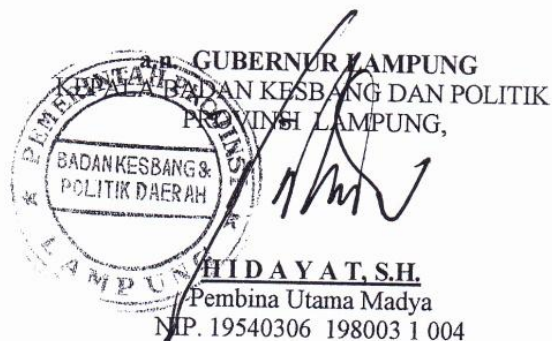 a.n. GUBERNUR LAMPUNG
KEPALA BADAN KESBANG DAN POLITIK
PROVINSI LAMPUNG,
PEMERINTAH PROVINSI
BADAN KESBANG &
POLITIK DAERAH
LAMPUNG
HIDAYAT, S.H.
Pembina Utama Madya
NIP. 19540306 198003 1 004